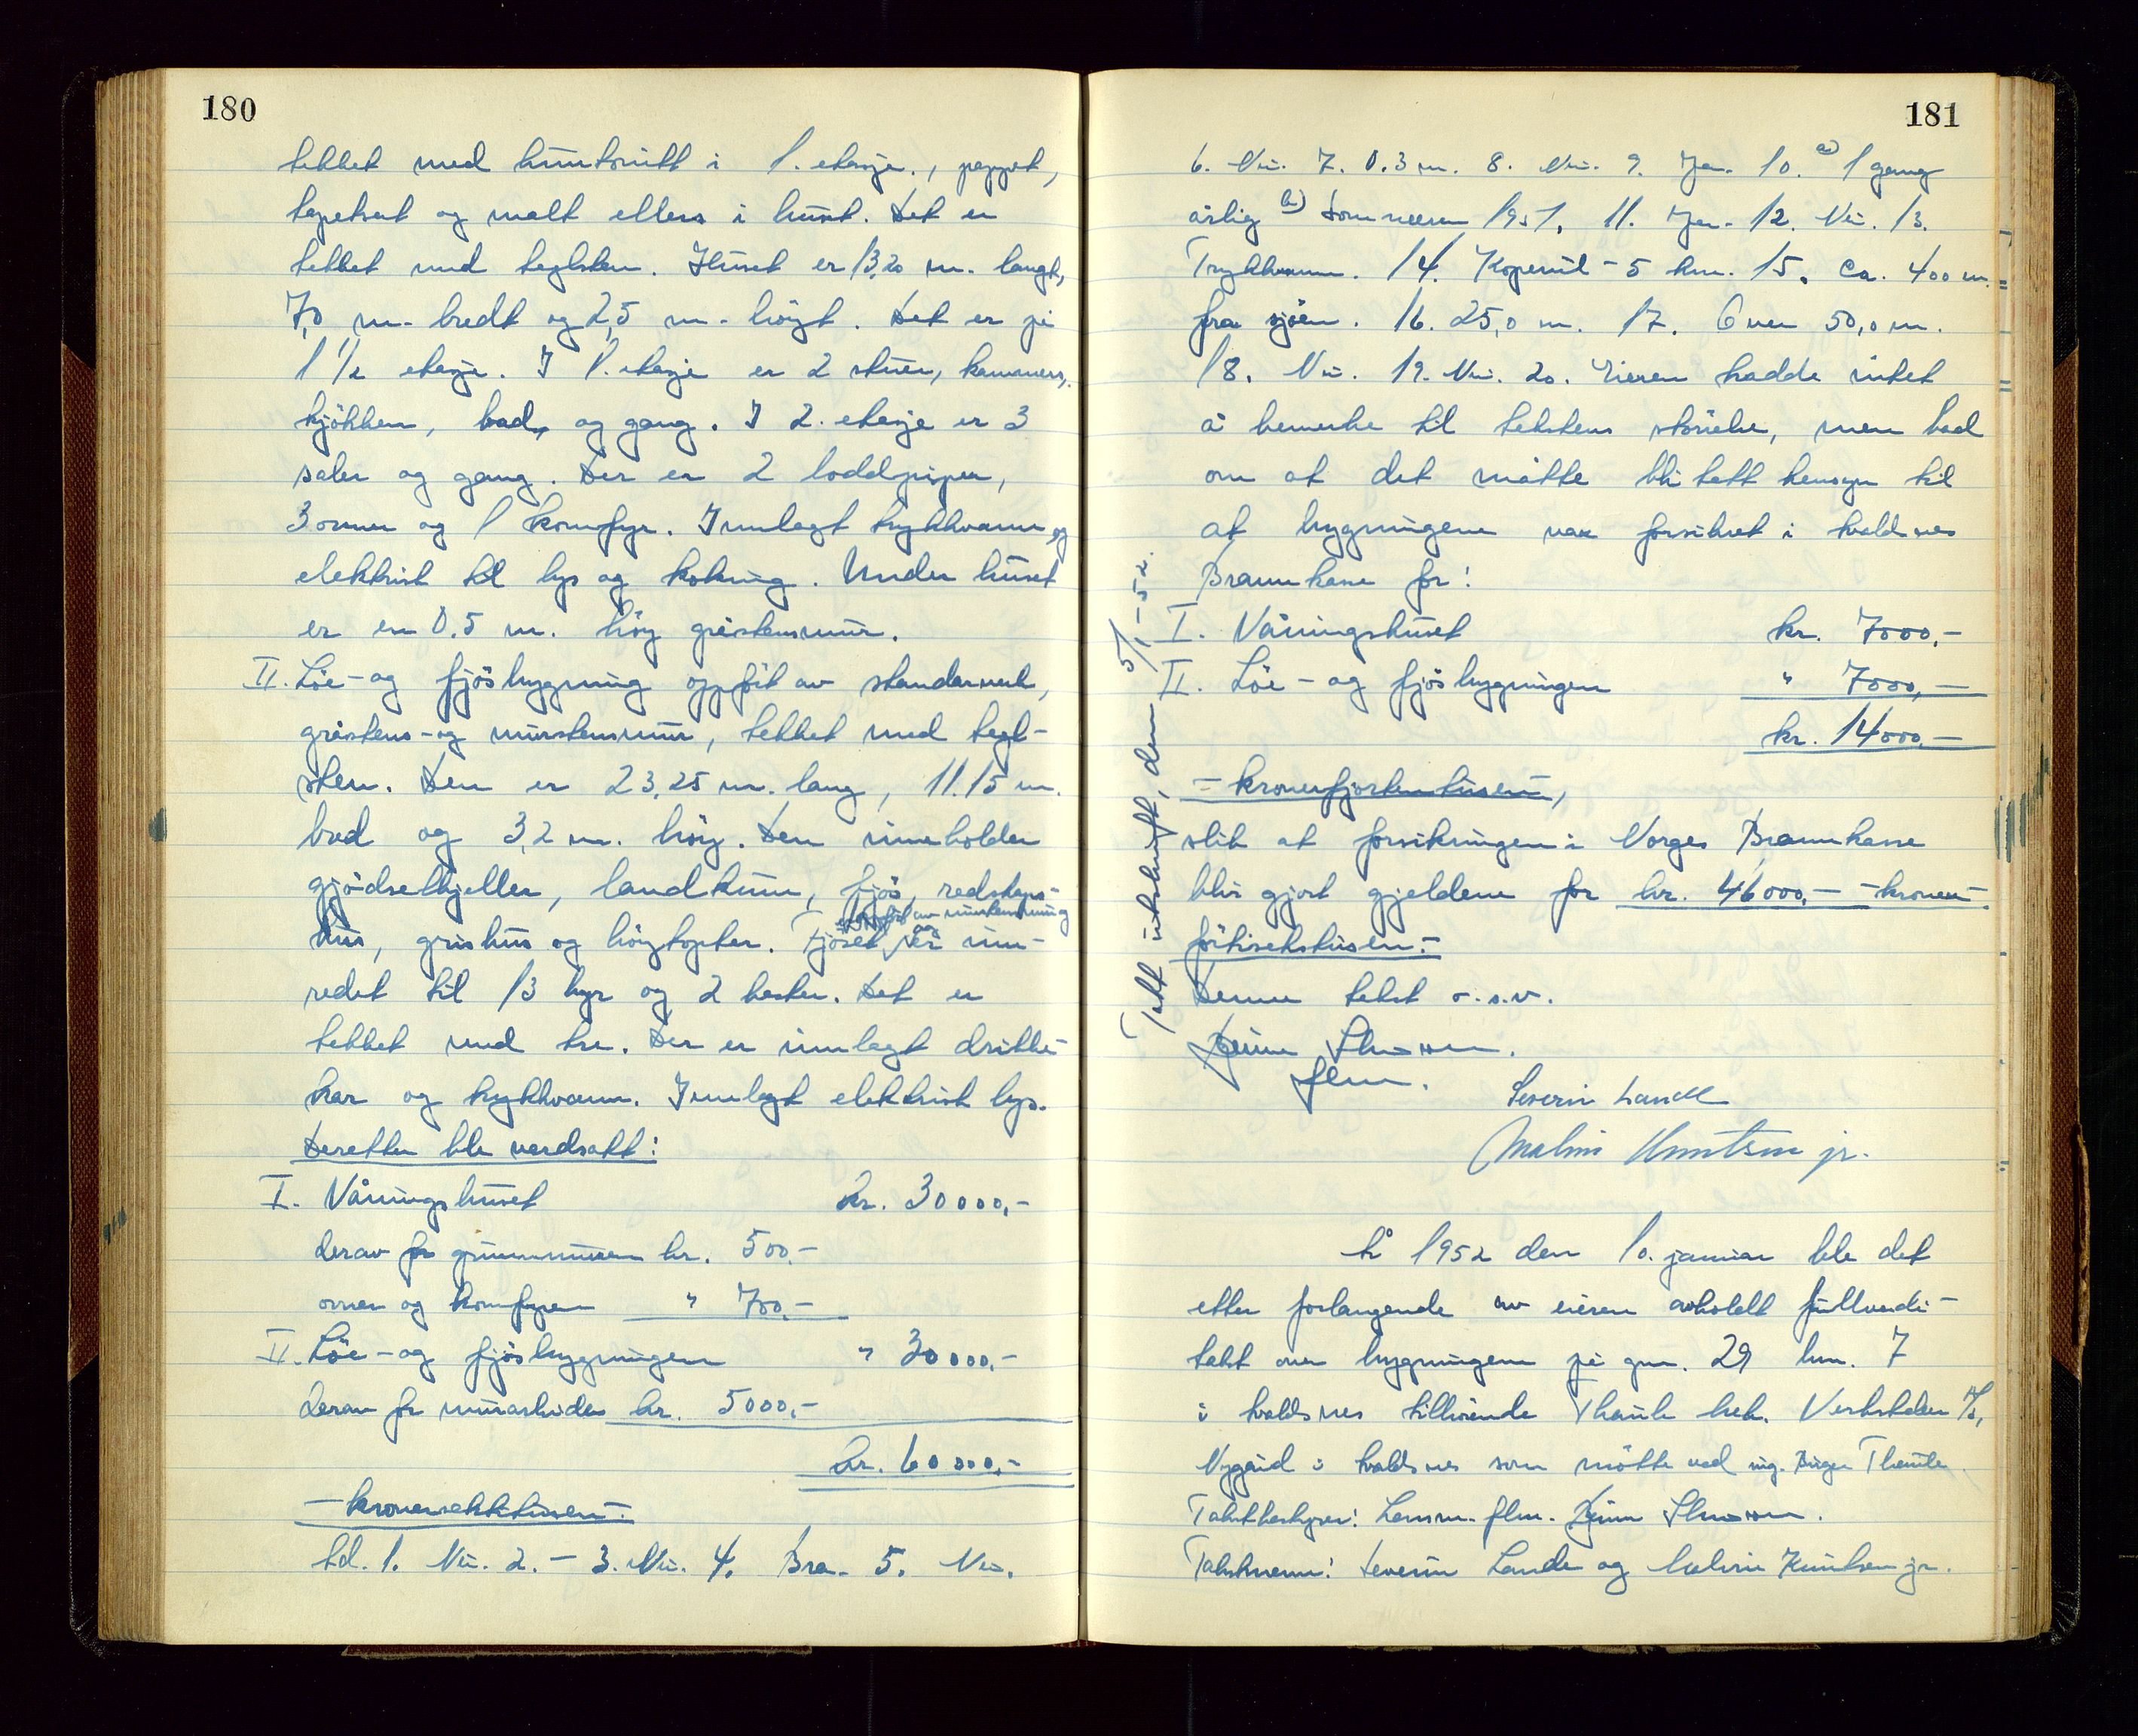 180
tekket med huntonitt i 1. etasje., pappet,
tapetsert og malt ellers i huset. Det er
tekket med teglsten. Huset er 13,20 m. langt,
7,0 m. bredt og 2,5 m. høigt. Det er på
1 1/2 etasje. I 1. etasje er 2 stuer, kammers,
kjøkken, bad, og gang. I 2. etasje er 3
saler og gang. Der er 2 loddpiper,
3 ovner og 1 komfyr. Innlagt trykkvann og
elektrisk til lys og koking. Under huset
er en 0.5 m. høy gråstensmur.
II. Løe- og fjøsbygning oppført av standerverk,
gråstens- og murstensmur, tekket med tegl-
sten. Den er 23,25 m. lang, 11.15 m.
bred og 3,2 m. høig. Den inneholder
gjødselkjeller, landkum, fjøs, redskaps-
er oppført av murstensmur og
hus, grishus og høytopter. Fjøset er inn-
redet til 13 kyr og 2 hester. Det er
tekket med tre. Der er innlagt drikke-
kar og trykkvann. Innlagt elektrisk lys.
Deretter ble verdsatt:
I. Våningshuset kr. 30000,-
derav for grunnmuren kr. 500.-
ovner og komfyren " 700.-
II. Løe- og fjøsbygningen " 30000.-
derav for murarbeider kr. 5000,-
kr. 60000.-
- kronersekstitusen.-
td. 1. Nei. 2. - 3. Nei. 4. Bra. 5. Nei.
181
6. Nei. 7. 0.3 m. 8. Nei. 9. Ja. 10. a) 1 gang
årlig b) Sommeren 1951. 11. Ja. 12. Nei. 13.
Trykkvann. 14. Kopervik - 5 km. 15. Ca. 400 m.
fra sjøen. 16. 25,0 m. 17. Over 50,0 m.
18. Nei. 19. Nei. 20. Eieren hadde intet
å bemerke til takstens størrelse, men bad
om at det måtte bli tatt hensyn til
at bygningene var forsikret i Avaldsnes
Brannkasse for:
I. Våningshuset kr. 7000.-
II. Løe- og fjøsbygningen " 7000,-
kr. 14000.-
- kronerfjortentusen,
slik at forsikringen i Norges Brannkasse
blir gjort gjeldene for kr. 46000,- - kroner-
førtisekstusen.-
Denne takst o.s.v.
flm.
Severin Lande
Malvin Knutsen jr.
Tatt utskrift, den 5/1-52.
År 1952 den 10. januar ble det
etter forlangende av eieren avholdt fullverdi-
takst over bygningene på gnr. 29 bnr. 7
i Avaldsnes tilhørende Thaule Mek. Verksted A/S,
Nygård i Avaldsnes som møtte ved ing. Birger Thaule.
Takstbestyrer: Lensm. flm.
Takstmenn: Severin Lande og Malvin Knutsen jr.